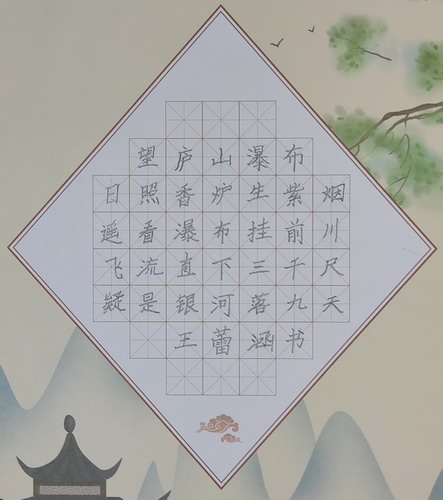 望庐山瀑布
日照香炉生紫烟
遥看瀑布挂前川
飞流直下三千尺
疑是银河落九天
王蕾涵书